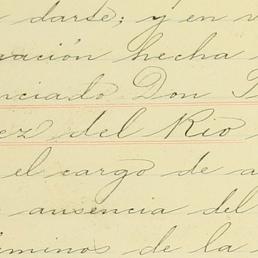 darse; y en v
uación hecha
nciado Don
ez del Rio
el cargo de a
ausencia del
éminos de la